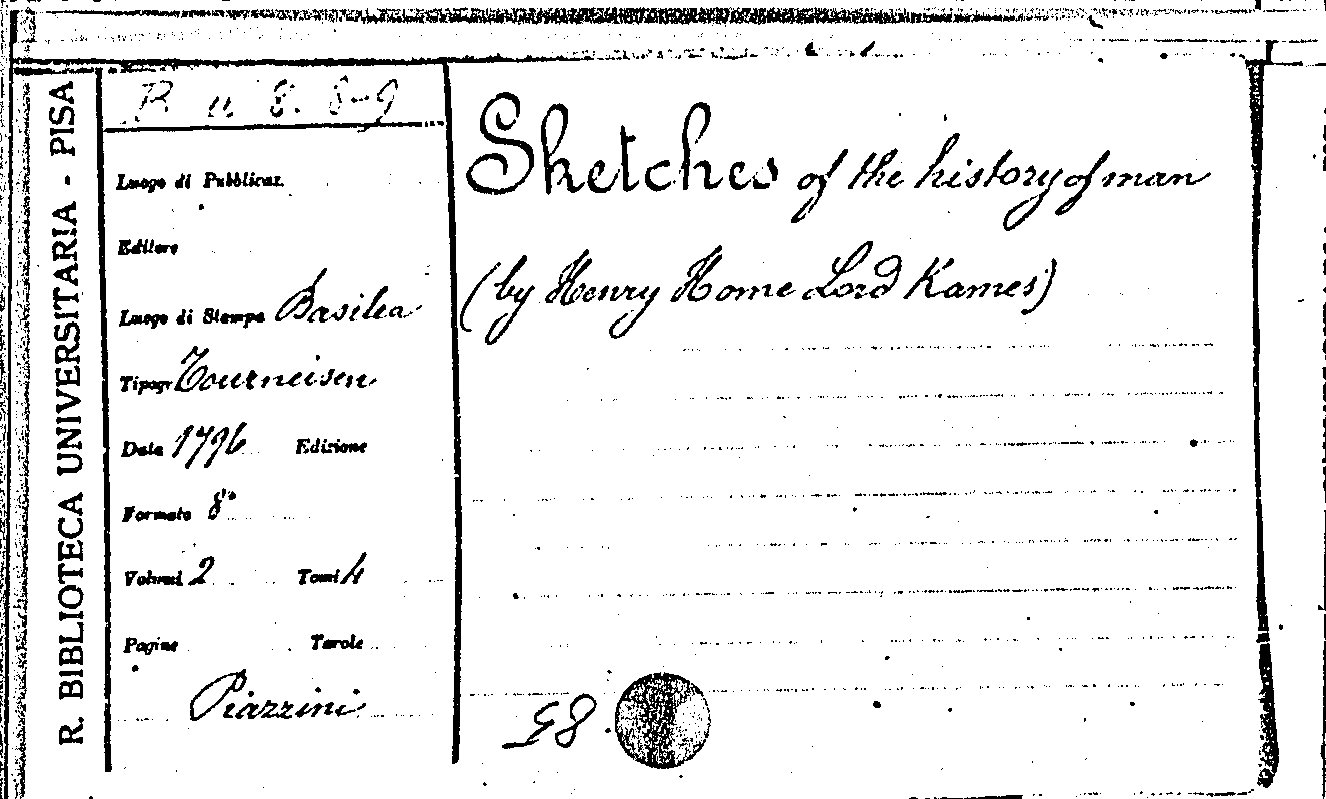 R. BIBLIOTECA UNIVERSITARIA - PISA
R u 8. 8-9
Luogo di Pubblicaz.
Editore
Luogo di Stampa Basilea
Tipogr Tourneisen
Data 1796 Edizione
Formato 8°
Volumi 2 Tomi 4
Pagine Tavole
Piazzini
Sketches of the history of man
(by Henry Home Lord Kames)